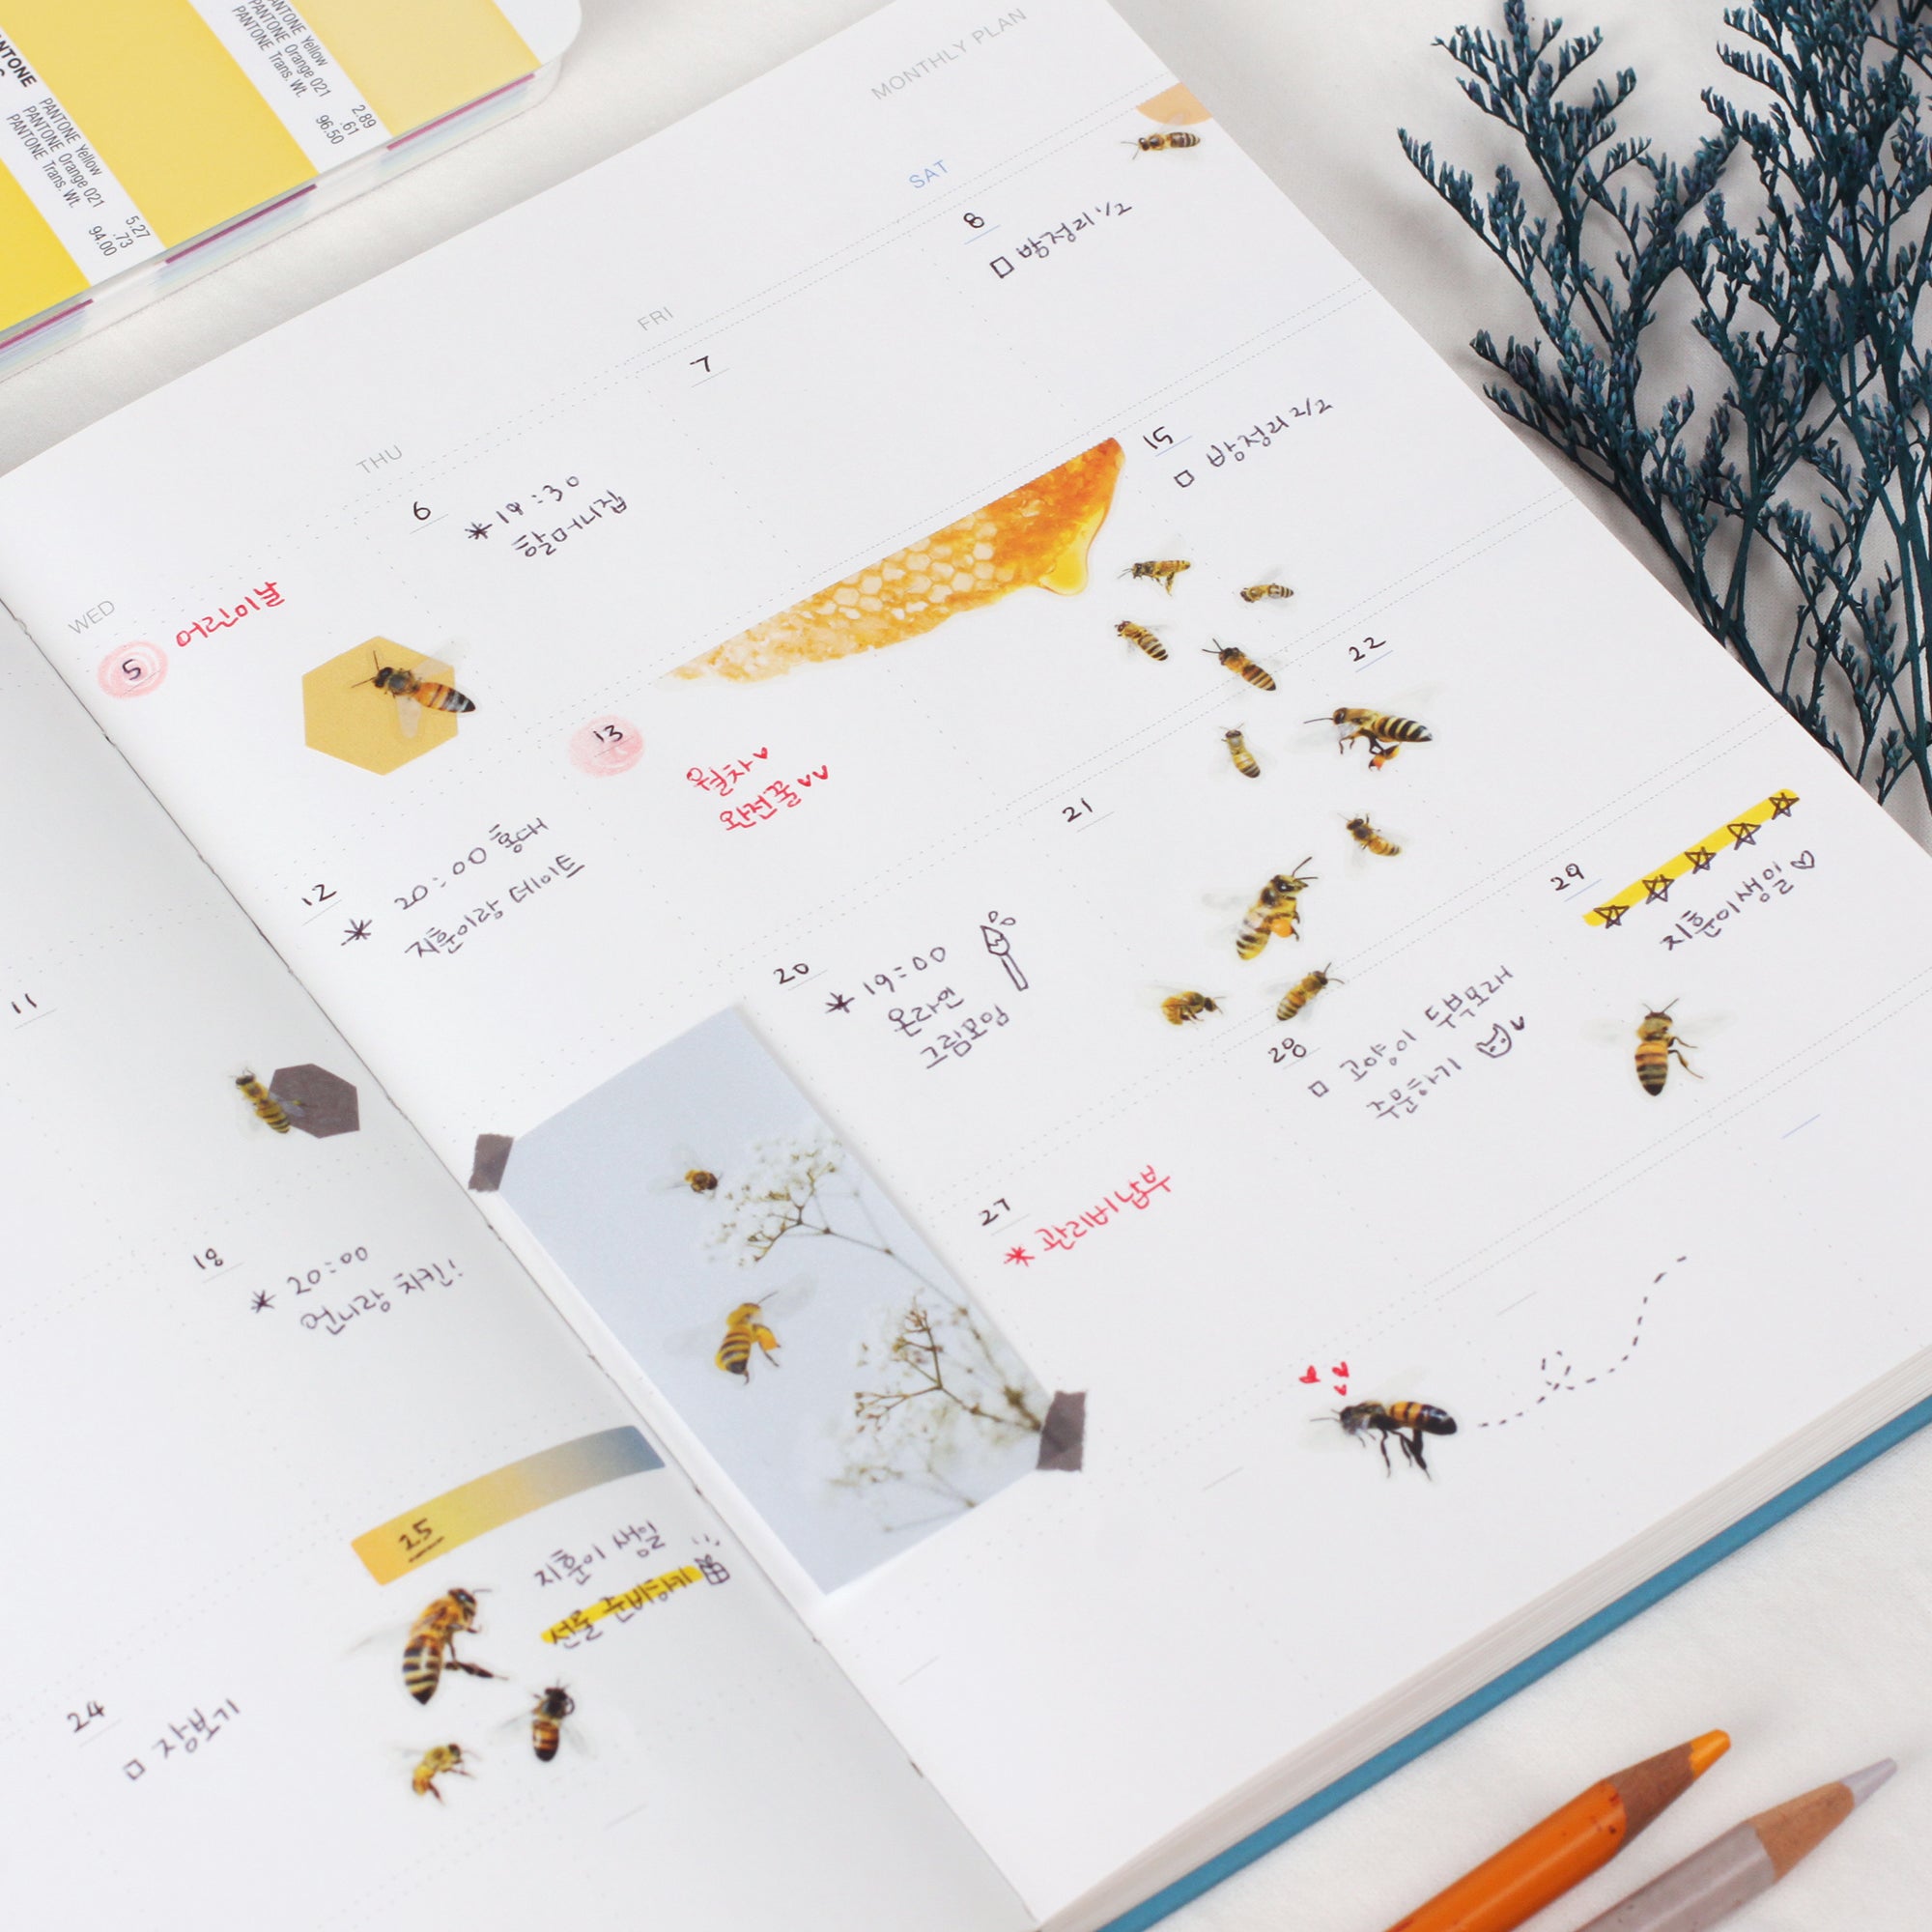 PANTONE
PANTONE Yellow 5.27
PANTONE Orange 021 .73
PANTONE Trans. Wt. 94.00
PANTONE Yellow 2.89
PANTONE Orange 021 .61
PANTONE Trans. Wt. 96.50
MONTHLY PLAN
WED
THU
FRI
SAT
5
어린이날
6
*19:30
할머니집
7
8
□ 방정리 1/2
11
12
* 20:00 홍대
지훈이랑 데이트
13
월차♥
완전꿀♥♥
15
□ 방정리 2/2
18
* 20:00
언니랑 치킨!
20
* 19:00
온라인
그림모임
21
22
24
□ 장보기
25
지훈이 생일
선물 준비하기
27
* 관리비 납부
28
□ 고양이 두부모래
주문하기
29
☆☆☆☆☆
지훈이생일♡